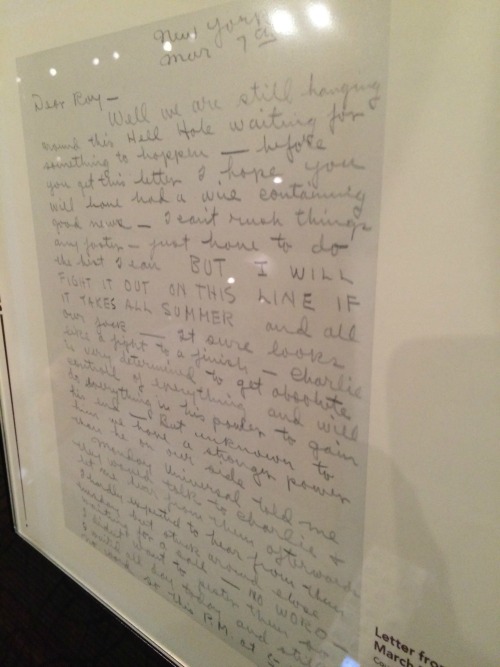 New York,
Mar 7th
Dear Roy -
Well we are still hanging
around this Hell Hole waiting for
something to happen — before
you get this letter I hope you
will have had a wire containing
good news - I can't rush things
any faster - just have to do
the best I can BUT I WILL
FIGHT IT OUT ON THIS LINE IF
IT TAKES ALL SUMMER and all
our jack — It sure looks
like a fight to a finish - Charlie
is very determined to get absolute
controll of everything and will
do everything in his power to gain
his end - But unknown to
him we have a stronger power
than he on our side
Monday Universal told me
they would talk to Charlie &
let me hear from them afterwards
I hardly expected to hear from them
but stuck around close
waiting for a call - NO WORD -
I didn't want to them
all day today and still
no word so this P.M. at 5
Letter fro
March